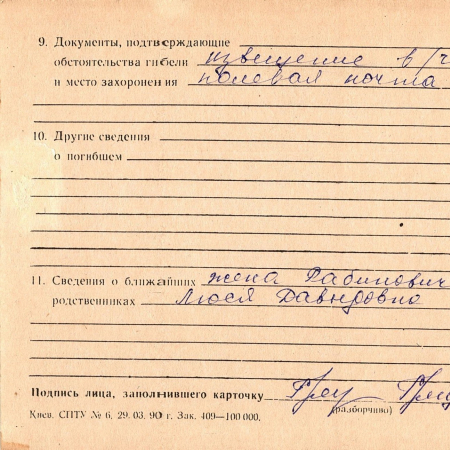 9. Документы, подтверждающие
обстоятельства гибели извещение в/ч
и место захоронения полевая почта
10. Другие сведения
о погибшем
11. Сведения о ближайших жена Рабинович
родственниках Люся Давыдовна
Подпись лица, заполнившего карточку
(разборчиво)
Киев. СПТУ № 6, 29. 03. 90 г. Зак. 409—100 000.